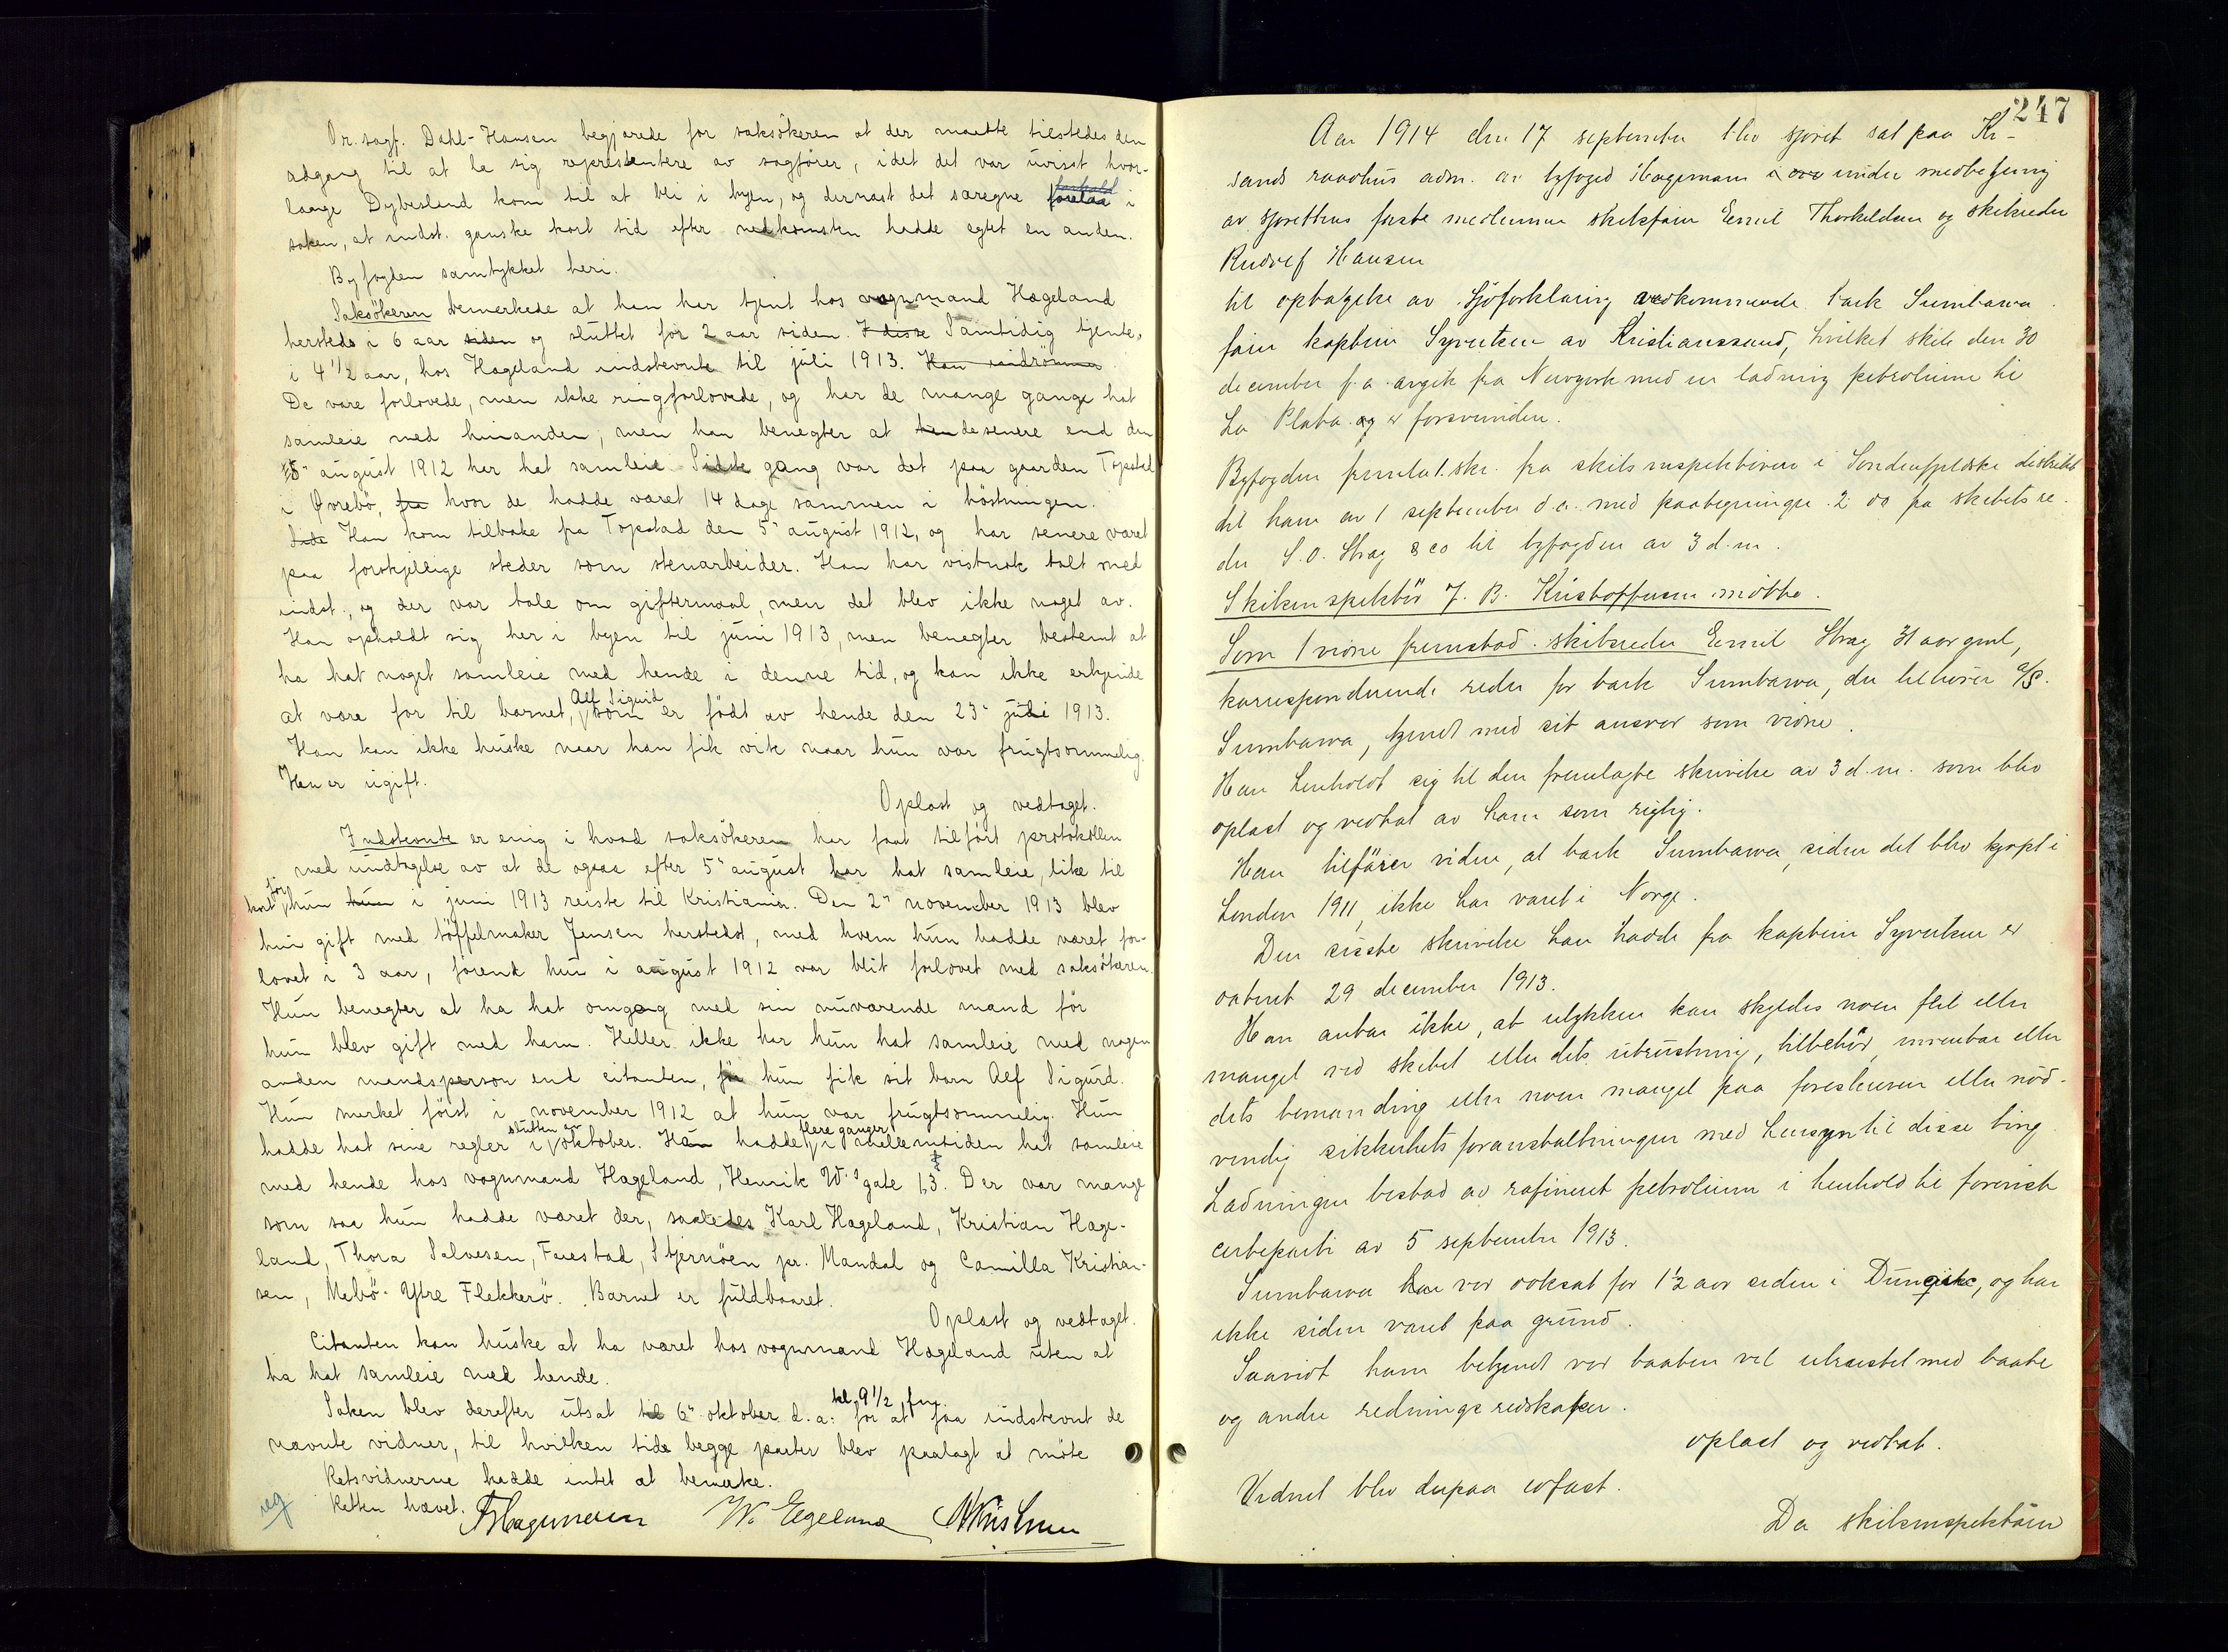 Or. sagf. Dahl-Hansen begjærede for saksökeren at der maatte tilstedes den
adgang til at la sig repræsentere av sagförer, idet det var uvisst hvor-
længe Dybesland kom til at bli i byen, og dernæst det særegne forhold i
saken, at indst. ganske kort tid efter nedkomsten hadde egtet en anden.
Byfogden samtykket heri.
Saksökeren bemerkede at han har tjent hos vognmand Hægeland
hersteds i 6 aar siden og sluttet for 2 aar siden. I disse Samtidig tjente,
i 4 1/2 aar, hos Hægeland indstevnte til juli 1913. Han indrömmer
De vare forlovede, men ikke ringforlovede, og har de mange gange hat
samleie med hinanden, men han benegter at de senere end den
5 august 1912 har hat samleie. Sidste gang var det paa gaarden Topstad
i Øvrebö, fra hvor de hadde været 14 dage sammen i höstningen.
Sids Han kom tilbake fra Topstad den 5 august 1912, og har senere været
paa forskjellige steder som stenarbeider. Han har vistnok talt med
indst., og der var tale om giftermaal, men det blev ikke noget av.
Han opholdt sig her i byen til juni 1913, men benegter bestemt at
ha hat noget samleie med hende i denne tid, og kan ikke erkjende
at være far til barnet, Alf Sigurd som er födt av hende den 23 juli 1913.
Han kan ikke huske naar han fik vite naar hun var frugtsommelig.
Han er ugift.
Oplæst og vedtaget.
Indstevnte er enig i hvad saksökeren har faat tilfört protokollen
med undtagelse av at de ogsaa efter 5 august har hat samleie, like til
kort för hun hun i juni 1913 reiste til Kristiania. Den 2 november 1913 blev
hun gift med töffelmaker Jensen herstedst, med hvem hun hadde været for-
lovet i 3 aar, förend hun i august 1912 var blit forlovet med saksökeren.
Hun benegter at ha hat omgang med sin nuværende mand för
hun blev gift med ham. Heller ikke har hun hat samleie med nogen
anden mandsperson end citanten, för hun fik sit barn Alf Sigurd.
Hun merket först i november 1912 at hun var frugtsommelig. Hun
hadde hat sine regler i slutten av oktober. Han hadde flere ganger i mellemtiden hat samleie
med hende hos vognmand Hægeland, Henrik W.s gate 63. Der var mange
som saa hun hadde været der, saaledes Karl Hægeland, Kristian Hæge-
land, Thora Salvesen, Farestad, Stjernöen pr. Mandal og Camilla Kristian-
sen, Mebö Ytre Flekkerö. Barnet er fuldbaaret.
Oplæst og vedtaget.
Citanten kan huske at ha været hos vognmand Hægeland uten at
ha hat samleie med hende.
Saken blev derefter utsat til 6 oktober d.a. kl. 9 1/2 fm. for at faa indstevnt de
nævnte vidner, til hvilken tid begge parter blev paalagt at möte
Retsvidnerne hadde intet at bemærke.
reg Retten hævet.
Hagemann W. Egeland

247
Aar 1914 den 17 september blev sjöret sat paa Kr-
sands raadhus adm. av byfoged Hagemann i ove under medbetjening
av sjörettens faste medlemmer skibsförer Emil Thorkildsen og skibsreder
Rudolf Hansen
til optagelse av sjöforklaring vedkommende bark Sumbawa
förer kaptein Syvertsen av Kristianssand, hvilket skib den 30
december f.a. avgik fra Newyork med en ladning petroleum til
La Plata og er forsvunden.
Byfogden fremla 1. skr. fra skibsinspektören i Söndenfjeldske distrikt
til ham av 1 september d.a. med paategninger 2 do fra skibets re-
der S.O. Stray & co til byfogden av 3 d.m.
Skibsinspektör J. B. Kristoffersen mötte.
Som 1 vidne fremstod skibsreder Emil Stray 31 aar gml,
korresponderende reder for bark Sumbawa, der tilhörer A/S.
Sumbawa, kjendt med sit ansvar som vidne.
Han henholdt sig til den fremlagte skrivelse av 3 d.m. som blev
oplæst og vedtat av ham som rigtig.
Han tilförer videre, at bark Sumbawa, siden det blev kjöpt i
London 1911, ikke har været i Norge.
Den sisste skrivelse han hadde fra kaptein Syvertsen er
dateret 29 december 1913.
Han antar ikke, at ulykken kan skyldes noen feil eller
mangel ved skibet eller dets utrustning, tilbehör, inventar eller
dets bemanding eller noen mangel paa foreskreven eller nöd-
vendig sikkerhetsforanstaltninger med hensyn til disse ting.
Ladningen bestod av rafineret petroleum i henhold til forevist
certeparti av 5 september 1913.
Sumbawa har var doksat for 1 1/2 aar siden i Dungiske, og har
ikke siden været paa grund.
Saavidt ham bekjendt var baaten vel utrustet med baate
og andre redningsredskaper.
oplæst og vedtat.
Vidnet blev derpaa edfæst.
Da skibsinspektören